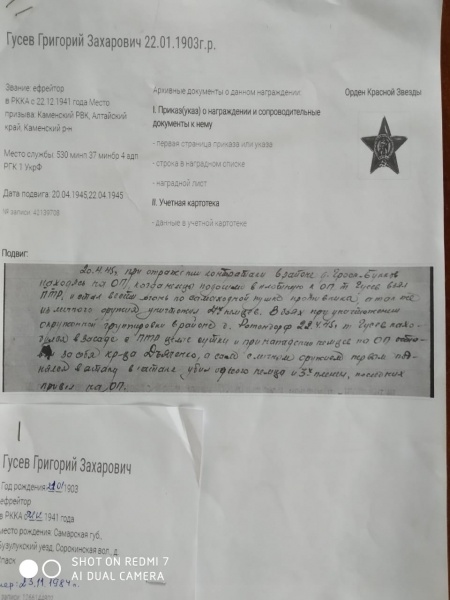 Гусев Григорий Захарович 22.01.1903г.р.
Звание: ефрейтор
в РККА с 22.12.1941 года Место
призыва: Каменский РВК, Алтайский
край, Каменский р-н
Место службы: 530 минп 37 минбр 4 адп
РГК 1 УкрФ
Дата подвига: 20.04.1945,22.04.1945
№ записи: 42139708
Архивные документы о данном награждении:
I. Приказ(указ) о награждении и сопроводительные
документы к нему
- первая страница приказа или указа
- строка в наградном списке
- наградной лист
II. Учетная картотека
- данные в учетной картотеке
Орден Красной Звезды
Подвиг:
20.4.45г. при отражении контратаки в районе
находясь на ОП, когда немцы подошли вплотную к ОП т. Гусев взял
ПТР, и стал вести огонь по самоходной пушке противника, а так же
из личного оружия уничтожил немцев. В боях при уничтожении
окруженной группировки в районе г. 22.4.45г. т. Гусев
в засаде с ПТР
за себя а сам с личным оружием первым
в атаку, в атаке убил одного немца и
привел на ОП.
Гусев Григорий Захарович
Год рождения 1903
ефрейтор
в РККА 1941 года
место рождения: Самарская губ,
Бузулукский уезд, Сорокинская вол., д.
23.11.1984г.
SHOT ON REDMI 7
AI DUAL CAMERA